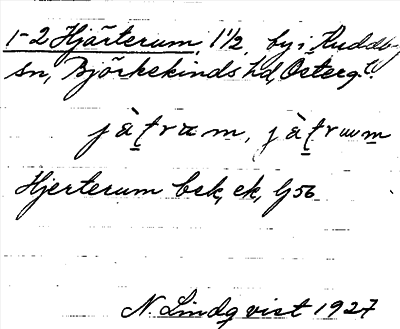 1-2 Hjärterum, 1 1/2, by i Ruddby
sn, Björkekinds hd, Österg.
jàt̲ram, jàt̲rum
Hjerterum bsk, ek, Gj 56
N. Lindqvist 1927